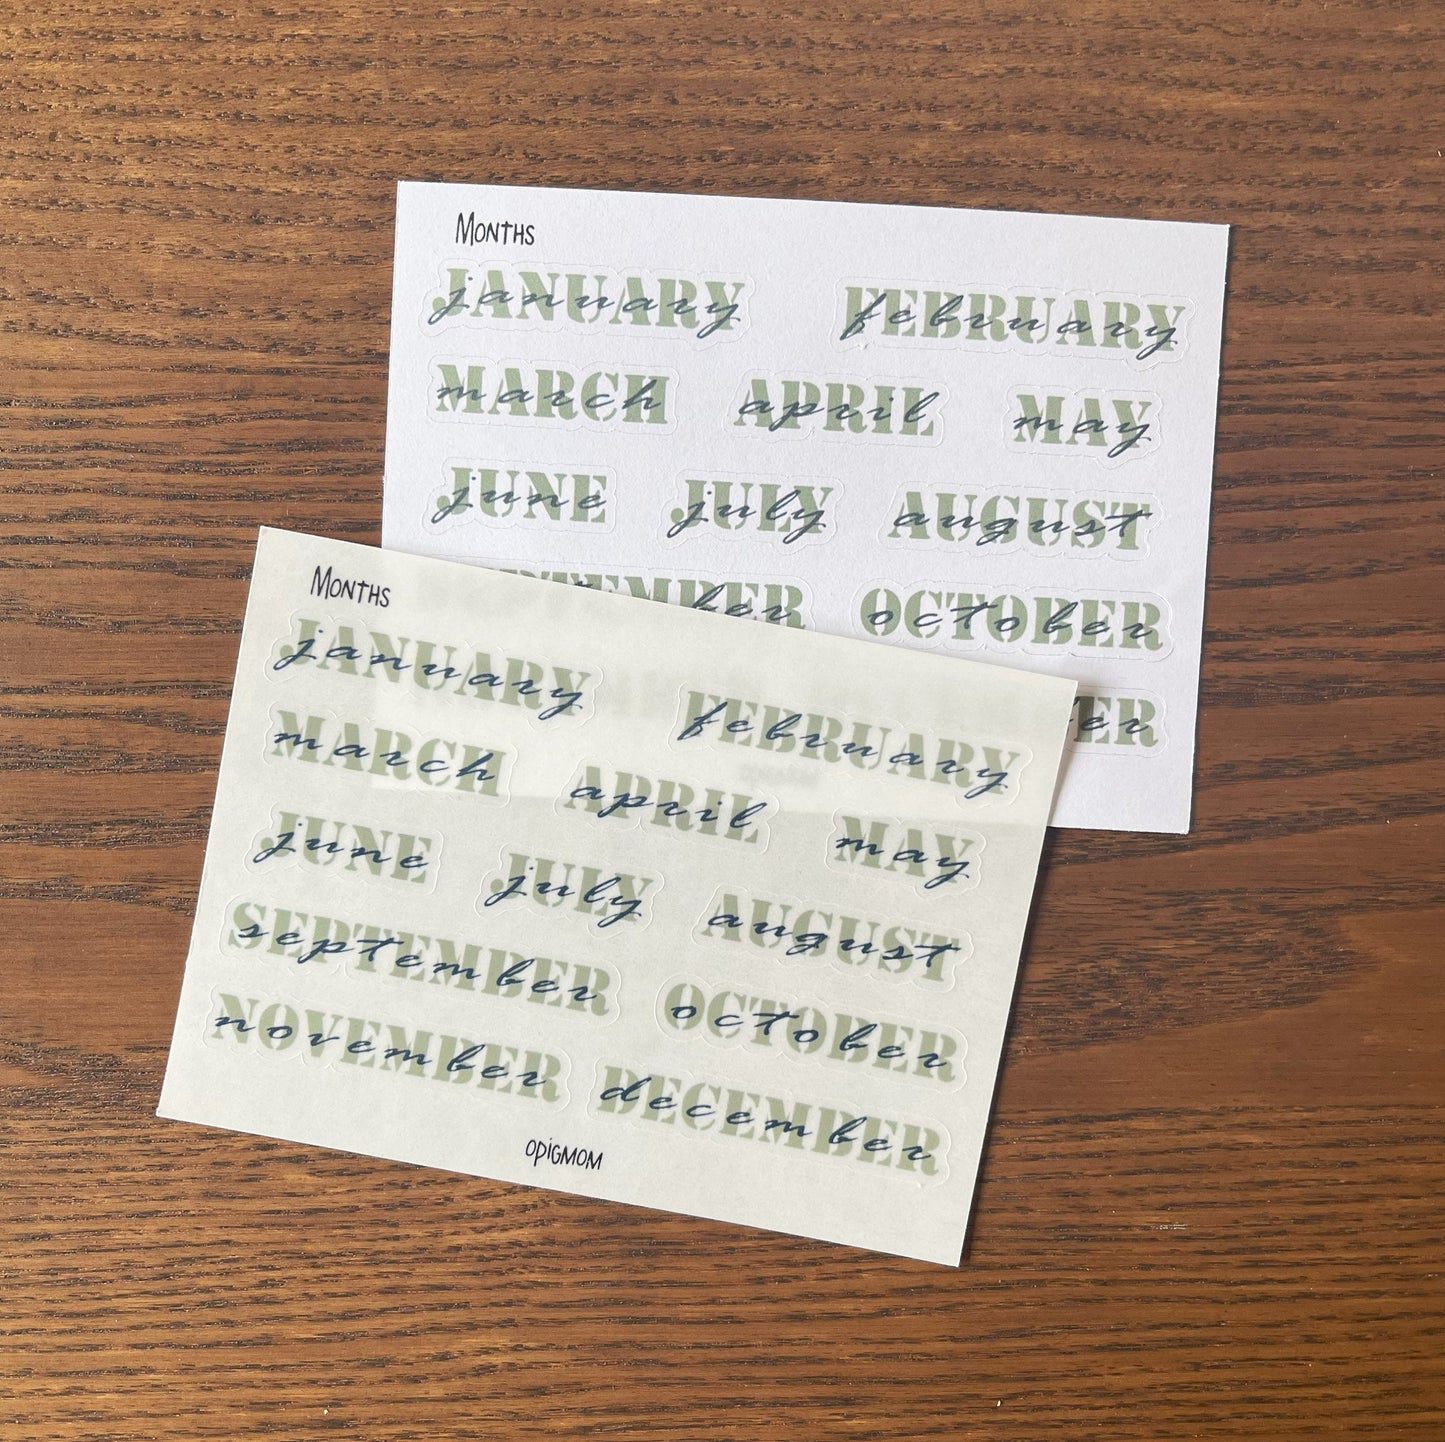 Months
JANUARY january FEBRUARY february
MARCH march APRIL april MAY may
JUNE june JULY july AUGUST august
PTEMBER ber OCTOBER october
ER er
Months
JANUARY january FEBRUARY february
MARCH march APRIL april MAY may
JUNE june JULY july AUGUST august
SEPTEMBER september OCTOBER october
NOVEMBER november DECEMBER december
OPiGMOM